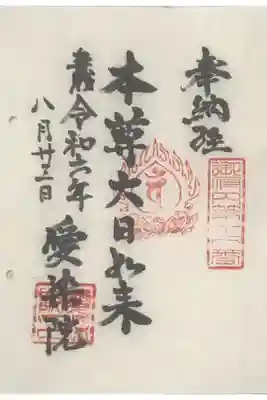 奉納経
本尊大日如来
令和六年
八月廿二日
愛染院